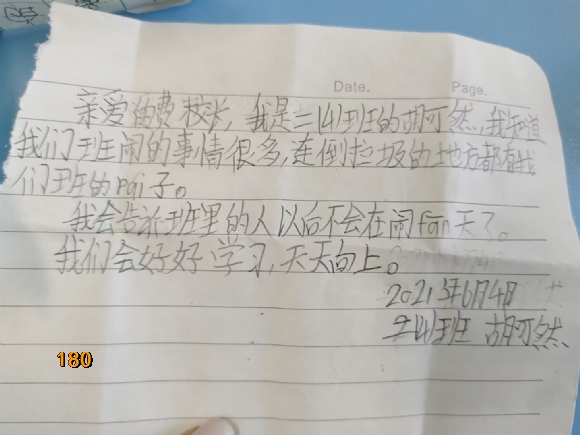 Date.
Page.
亲爱的费校长,我是二4班的胡可然,我知道
我们班闹的事情很多,连倒垃圾的地方都有我
们班的pai子。
我会告诉班里的人以后不会在闹fan天了。
我们会好好学习,天天向上。
2021年6月4日
二4班 胡可然
180